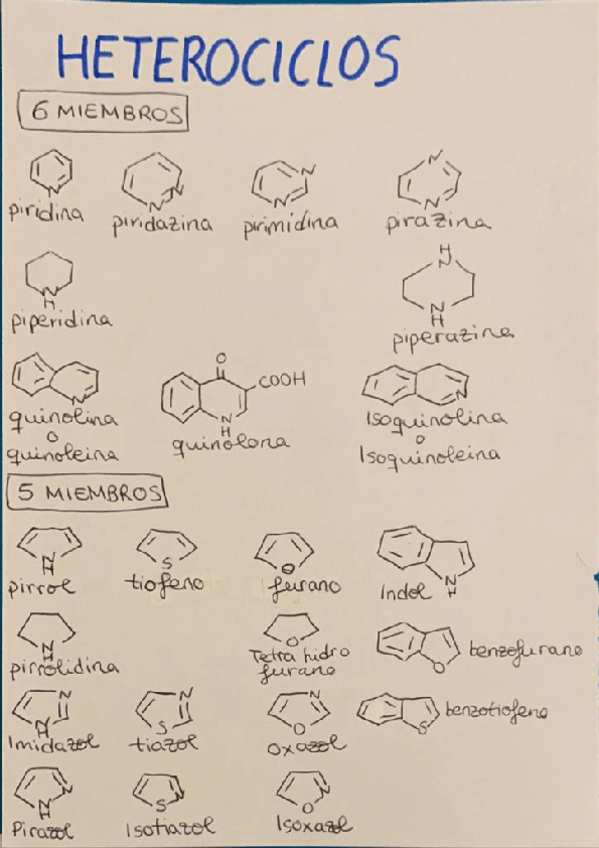 HETEROCICLOS
6 MIEMBROS
N
N
N
N
N
N
N
piridina
piridazina
pirimidina
pirazina
N
H
H
N
N
H
piperidina
piperazina
N
O
COOH
N
H
N
quinolina
o
quinoleina
quinolona
Isoquinolina
o
Isoquinoleina
5 MIEMBROS
N
H
S
O
N
H
pirrol
tiofeno
furano
Indol
N
H
O
O
pirrolidina
Tetra hidro
furano
benzofurano
N
N
H
N
S
N
O
S
Imidazol
tiazol
oxazol
benzotiofeno
N
N
H
N
S
N
O
Pirazol
Isotiazol
Isoxazol